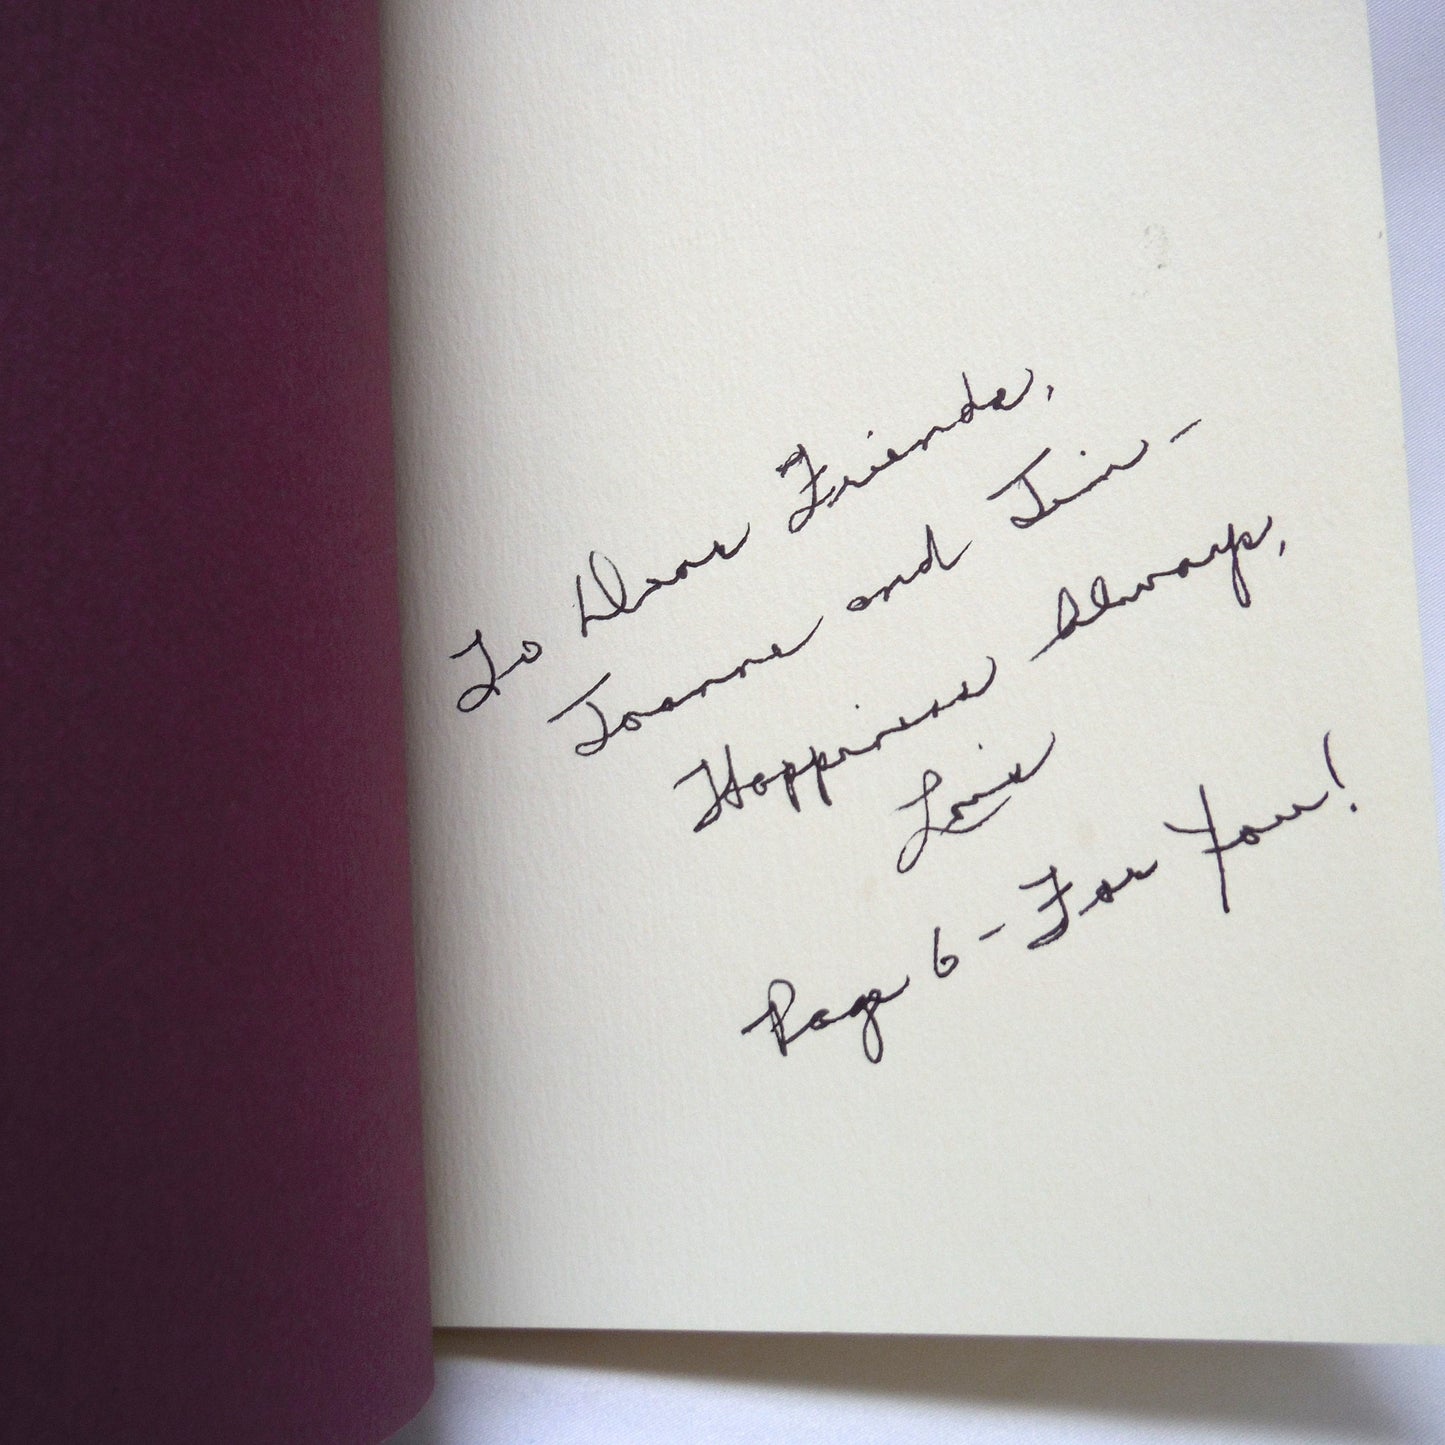 To Dear Friends,
Joanne and Jim -
Happiness Always,
Lois
Page 6 - For You!